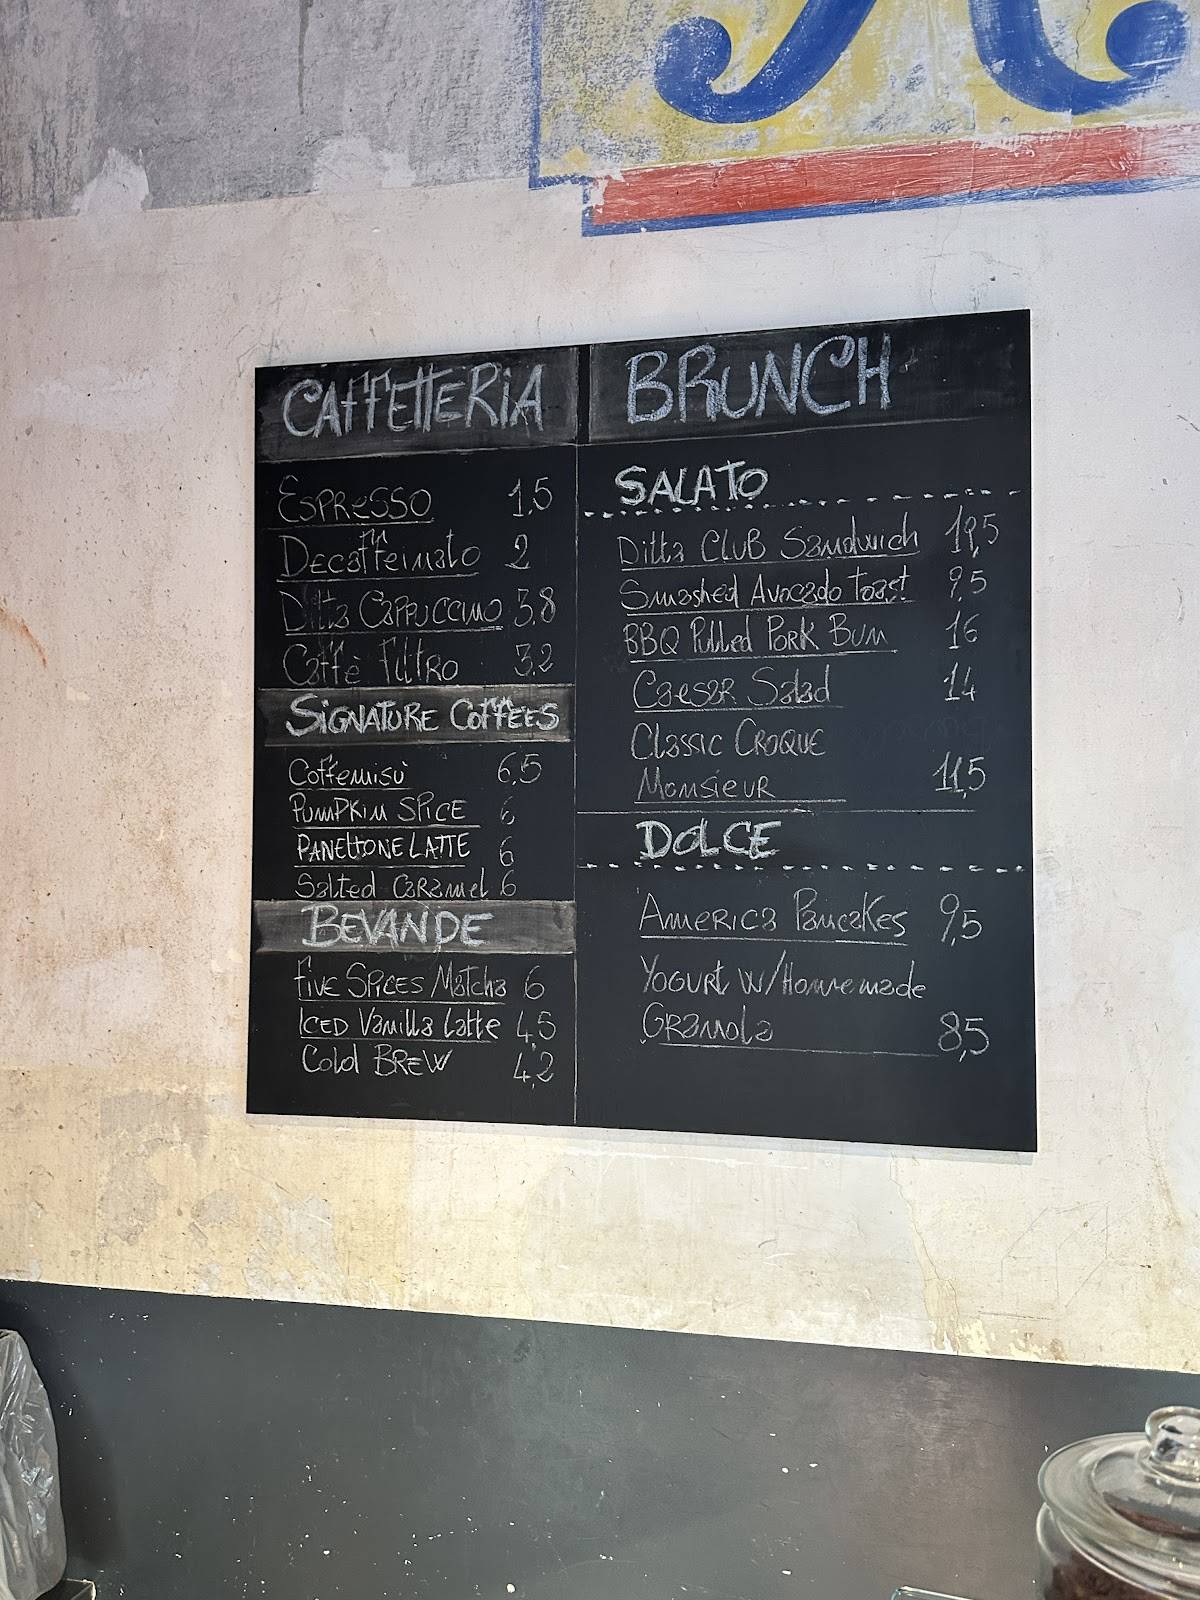 CAFFETTERIA
ESPRESSO 1.5
Decaffeinato 2
Ditta CAPPUCCINO 3,8
Caffè FILTRO 3.2
SIGNATURE COFFEES
Coffemisù 6,5
PUMPKIN SPICE 6
PANETTONE LATTE 6
Salted CARAMEL 6
BEVANDE
FIVE SPICES Matcha 6
ICED Vanilla Latte 4,5
Cold BREW 4,2
BRUNCH
SALATO
Ditta CLUB Sandwich
Smashed Avocado toast 9,5
BBQ Pulled PORK BUN 16
CAESAR Salad 14
Classic CROQUE
Monsieur 11,5
DOLCE
AMERICA PANCAKES 9,5
YOGURT W/Homemade
GRANOLA 8,5